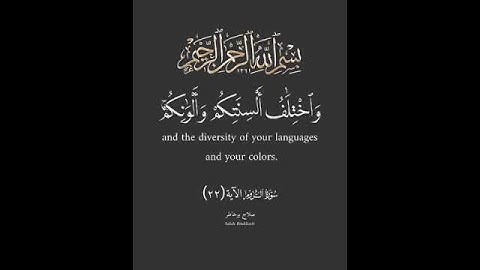 بِسْمِ اللَّهِ الرَّحْمَٰنِ الرَّحِيمِ
وَاخْتِلَٰفُ أَلْسِنَتِكُمْ وَأَلْوَٰنِكُمْ
and the diversity of your languages
and your colors.
سُورَةُ الرُّومِ الآية (٢٢)
صلاح بوخاطر
Salah Bukhatir